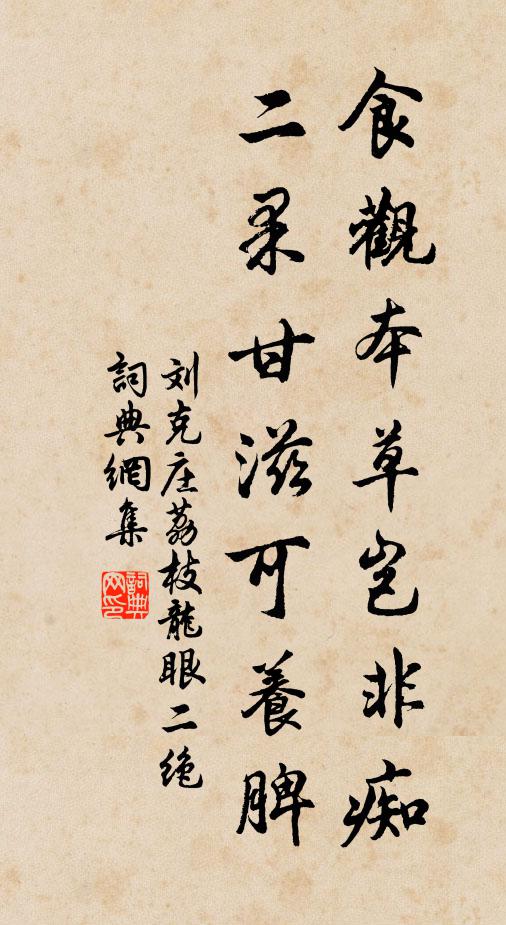 食觀本草豈非痴
二果甘滋可養脾
刘克庄荔枝龍眼二绝
詞典網集
詞典網印